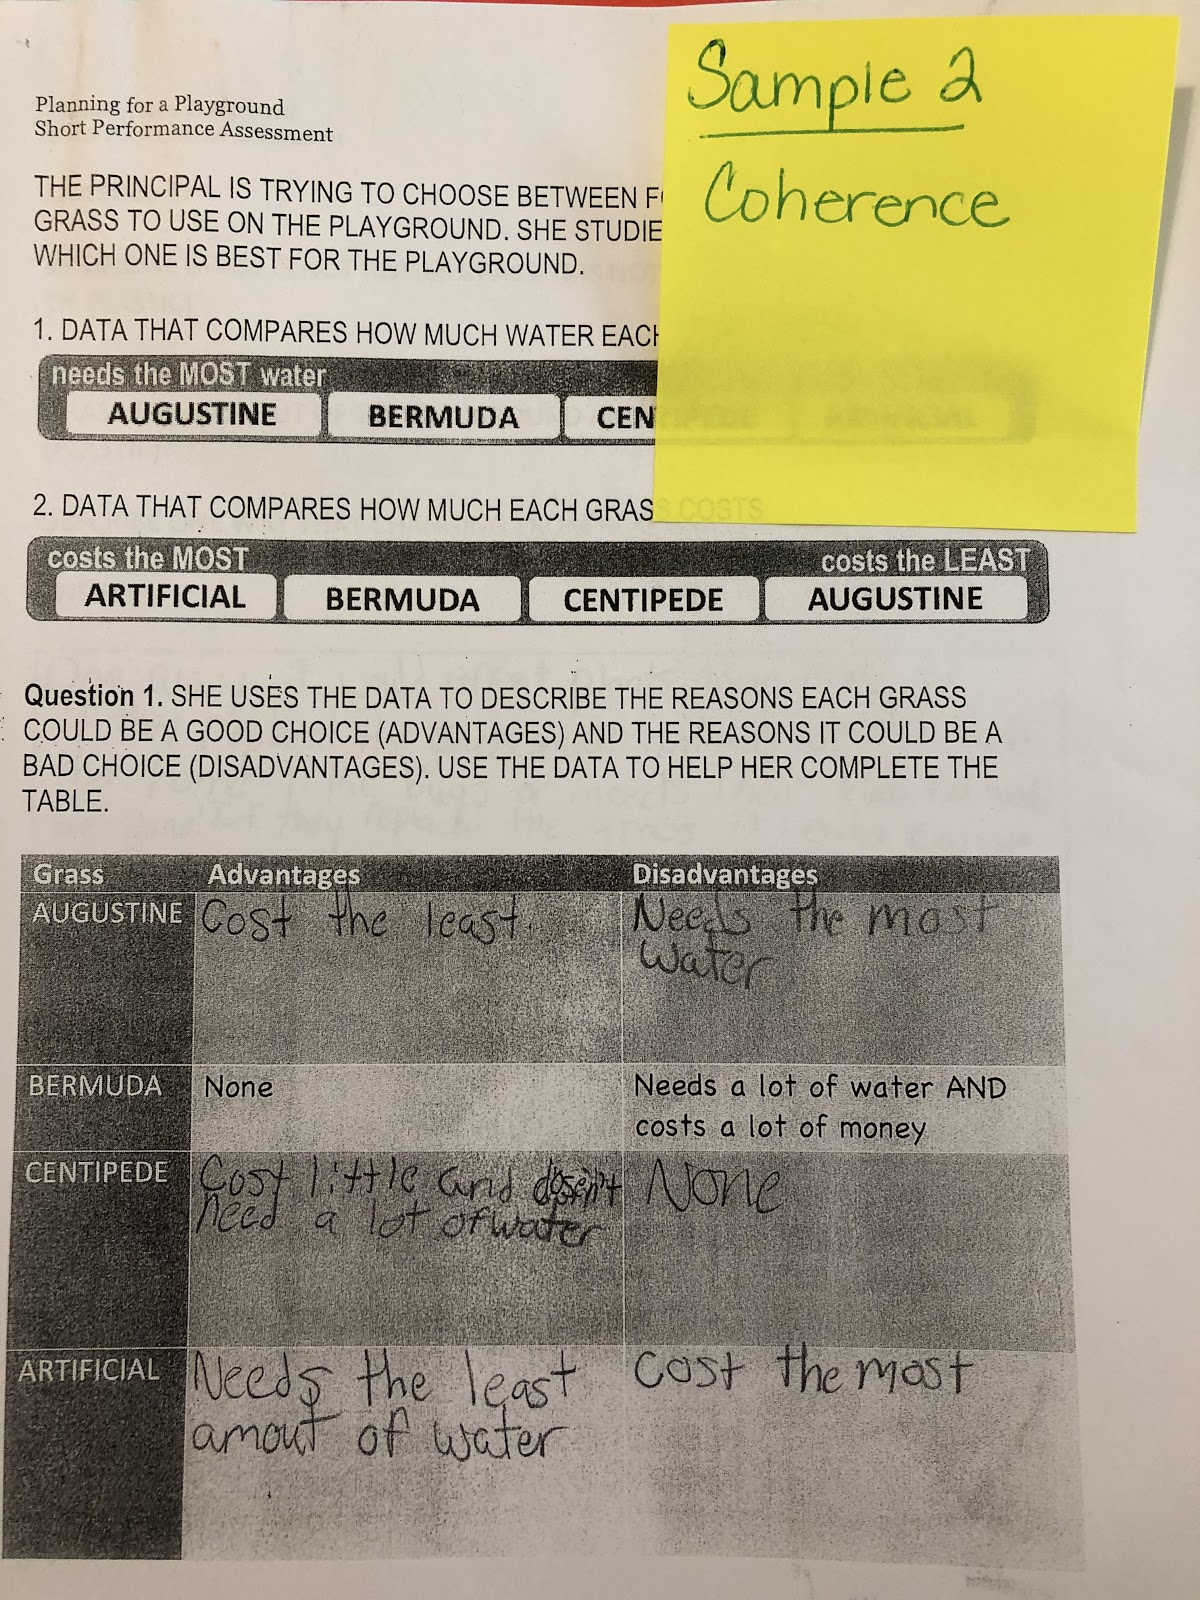 Sample 2
Coherence
Planning for a Playground
Short Performance Assessment
THE PRINCIPAL IS TRYING TO CHOOSE BETWEEN
GRASS TO USE ON THE PLAYGROUND. SHE STUDIE
WHICH ONE IS BEST FOR THE PLAYGROUND.
1. DATA THAT COMPARES HOW MUCH WATER EACH
needs the MOST water
AUGUSTINE BERMUDA CENTIPEDE
2. DATA THAT COMPARES HOW MUCH EACH GRASS COSTS
costs the MOST costs the LEAST
ARTIFICIAL BERMUDA CENTIPEDE AUGUSTINE
Question 1. SHE USES THE DATA TO DESCRIBE THE REASONS EACH GRASS
COULD BE A GOOD CHOICE (ADVANTAGES) AND THE REASONS IT COULD BE A
BAD CHOICE (DISADVANTAGES). USE THE DATA TO HELP HER COMPLETE THE
TABLE.
Grass Advantages Disadvantages
AUGUSTINE Cost the least. Needs the most
water
BERMUDA None Needs a lot of water AND
costs a lot of money
CENTIPEDE Cost little and dosen't None
need a lot of water
ARTIFICIAL Needs the least Cost the most
amout of water